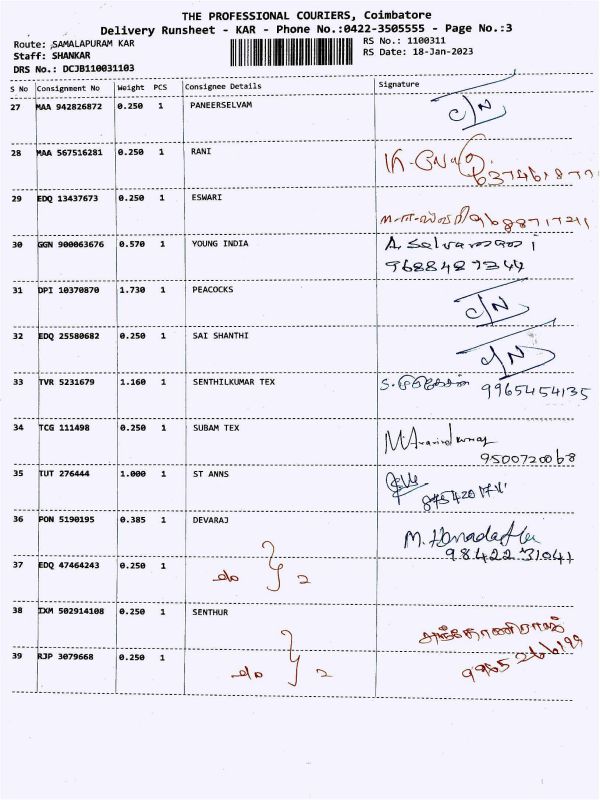 THE PROFESSIONAL COURIERS, Coimbatore
Delivery Runsheet - KAR - Phone No.:0422-3505555 - Page No.:3
Route: SAMALAPURAM KAR RS No.: 1100311
Staff: SHANKAR RS Date: 18-Jan-2023
DRS No.: DCJB110031103
S No Consignment No Weight PCS Consignee Details Signature
27 MAA 942826872 0.250 1 PANEERSELVAM C/N
28 MAA 567516281 0.250 1 RANI
29 EDQ 13437673 0.250 1 ESWARI 9688717211
30 GGN 900063676 0.570 1 YOUNG INDIA A. Selvamani
9688487344
31 DPI 10370870 1.730 1 PEACOCKS C/N
32 EDQ 25580682 0.250 1 SAI SHANTHI C/N
33 TVR 5231679 1.160 1 SENTHILKUMAR TEX 9965454135
34 TCG 111498 0.250 1 SUBAM TEX M. Aravind kumar
9500720068
35 TUT 276444 1.000 1 ST ANNS
36 PON 5190195 0.385 1 DEVARAJ
98422 31041
37 EDQ 47464243 0.250 1
38 IXM 502914108 0.250 1 SENTHUR அந்தோணிராஜ்
39 RJP 3079668 0.250 1